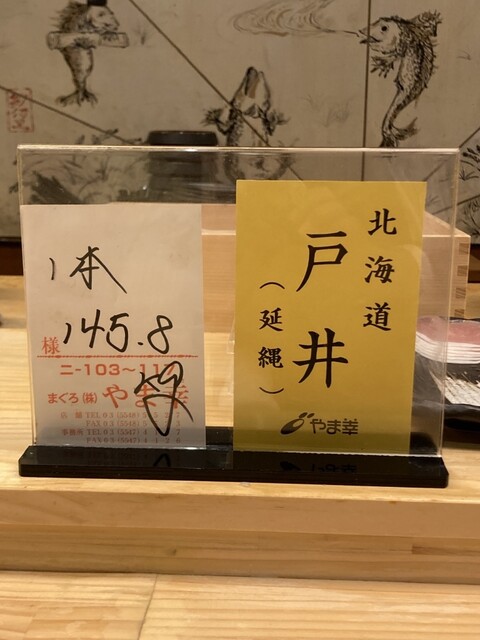 1本
145.8
様
ニ-103~11
まぐろ(株)やま幸
店舗 TEL 03 (5548)
FAX 03 (5548)
事務所 TEL 03 (5547)
FAX 03 (5547)
北海道
戸井
(延縄)
やま幸